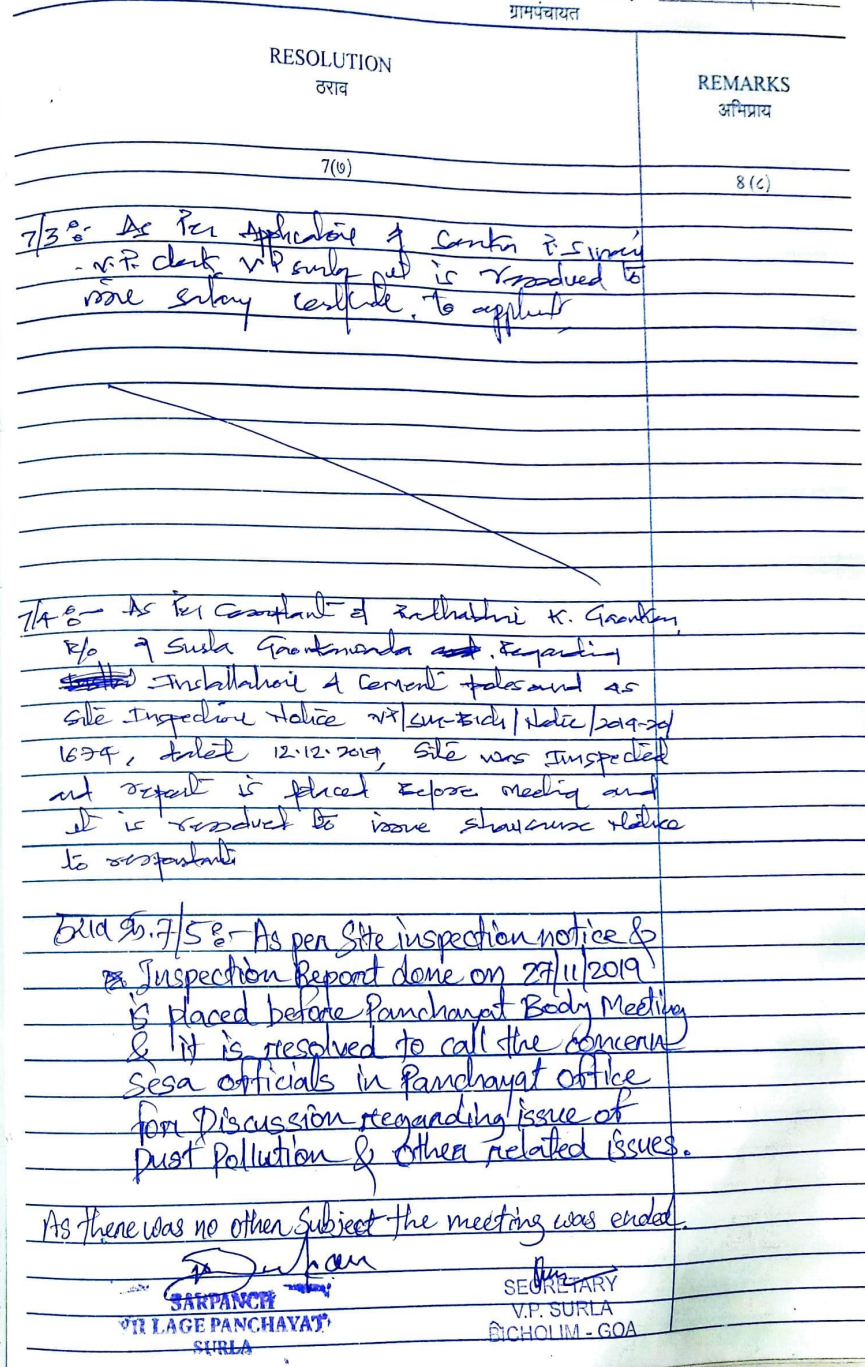 ग्रामपंचायत
RESOLUTION
ठराव
REMARKS
अभिप्राय
7(७)
8 (८)
7/3 :- As Per Application of
- V.P. clerk V.P surla it is resolved to
issue salary certificate. to applicant
7/4 :- As Per Complaint of K. Gaonkar,
R/o of Surla Gaonkarwada Regarding
Installation of Cement poles and as
Site Inspection Notice VP/Sur-Bich/Notice/2019-20/
1674, dated 12.12.2019, Site was Inspected
and report is placed Before Meeting and
it is resolved to issue showcause Notice
to respondent
ठराव क्र.7/5 :- As per Site inspection notice &
Inspection Report done on 27/11/2019
is placed before Panchayat Body Meeting
& it is resolved to call the concern
Sesa officials in Panchayat office
for Discussion regarding issue of
Dust Pollution & other related issues.
As there was no other Subject the meeting was ended.
SARPANCH
VILLAGE PANCHAYAT
SURLA
SECRETARY
V.P. SURLA
BICHOLIM - GOA